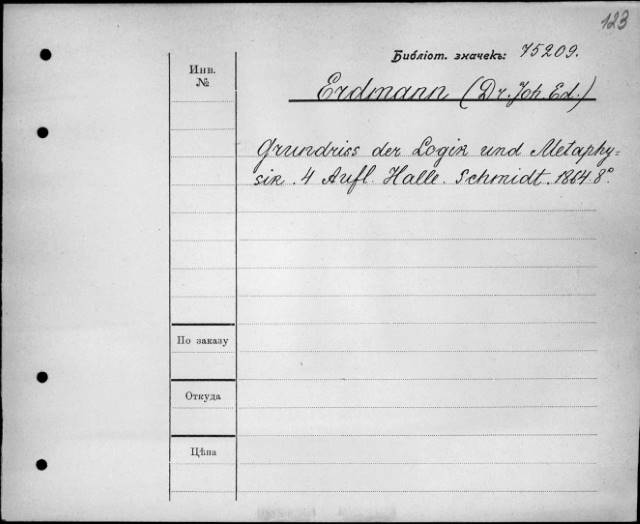 123
Библіот. значекъ: 75209.
Инв.
№
Erdmann (Dr. Joh. Ed.)
Grundriss der Logik und Metaphy=
sik. 4 Aufl. Halle. Schmidt. 1864 8°.
По заказу
Откуда
Цѣна